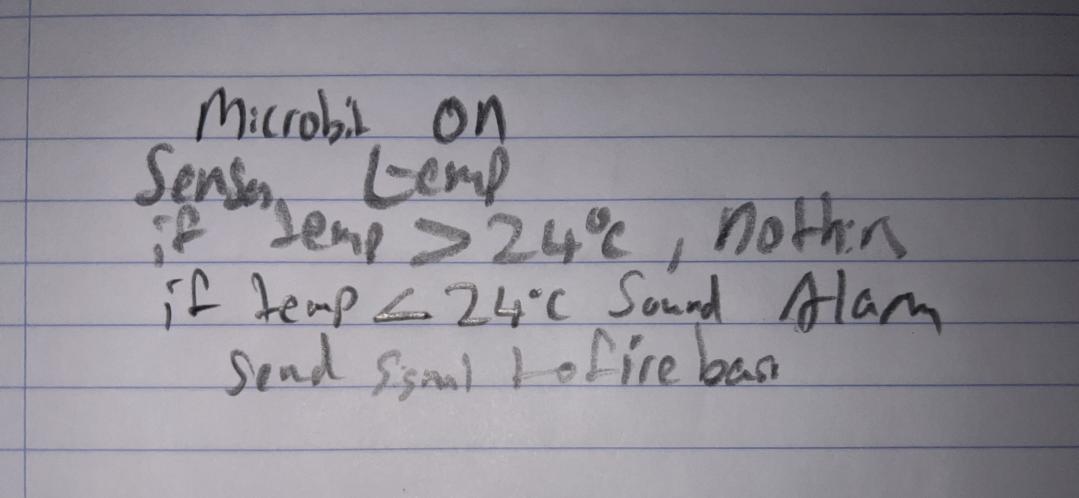 Microbit on
Senses temp
if temp > 24°c, nothin
if temp < 24°c Sound Alarm
Send signal to fire base